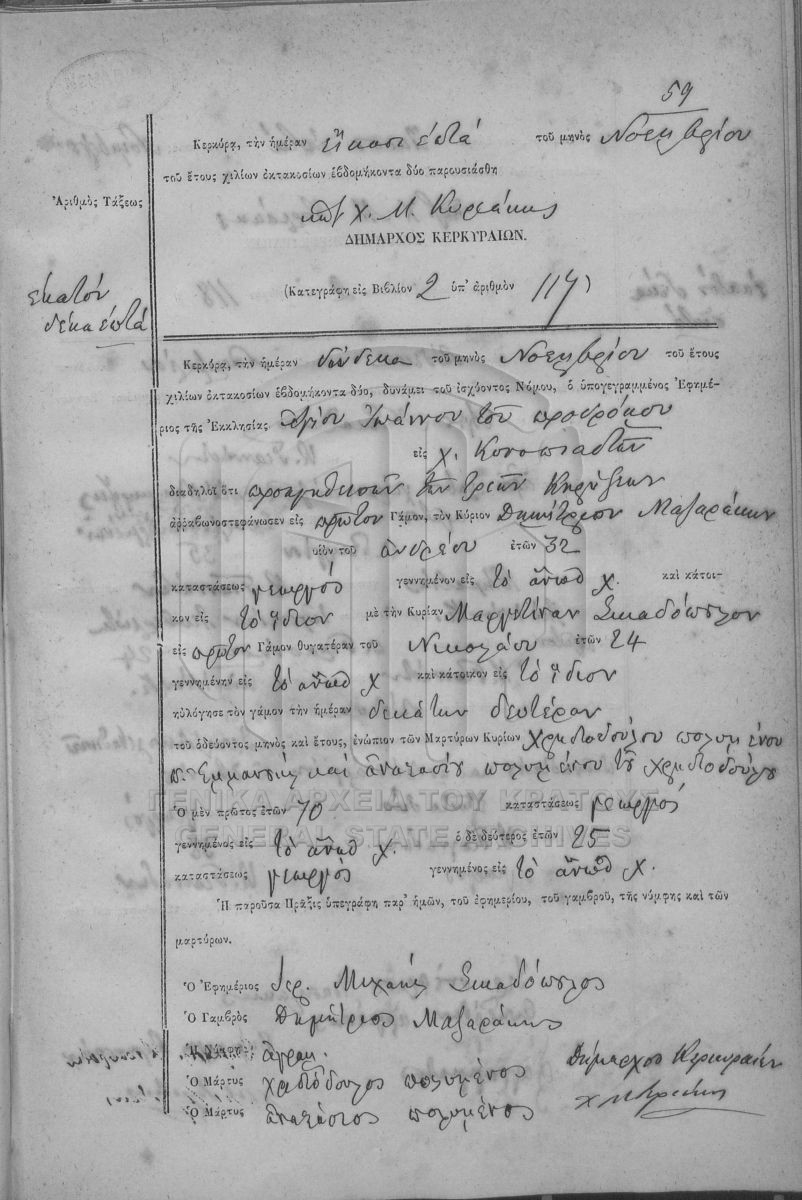 59
Κερκύρᾳ, τὴν ἡμέραν εἴκοσι ἑπτά τοῦ μηνὸς Νοεμβρίου
τοῦ ἔτους χιλίων ὀκτακοσίων ἑβδομήκοντα δύο παρουσιάσθη
Ἀριθμὸς Τάξεως
χ. Μ. Κυριάκης
ΔΗΜΑΡΧΟΣ ΚΕΡΚΥΡΑΙΩΝ.
(Κατεγράφη εἰς Βιβλίον 2 ὑπ' ἀριθμὸν 117)
ἑκατόν
δέκα επτά
Κερκύρᾳ, τὴν ἡμέραν δώδεκα τοῦ μηνὸς Νοεμβρίου τοῦ ἔτους
χιλίων ὀκτακοσίων ἑβδομήκοντα δύο, δυνάμει τοῦ ἰσχύοντος Νόμου, ὁ ὑπογεγραμμένος Ἐφημέ-
ριος τῆς Ἐκκλησίας Ἁγίου Ἰωάννου τοῦ προδρόμου
εἰς χ. Κυνοπιαστῶν
διαδηλοῖ ὅτι προηγηθεισῶν τῶν τριῶν Κηρύξεων
ἀρραβωνοστεφάνωσεν εἰς πρῶτον Γάμον, τὸν Κύριον Δημήτριον Μαζαράκην
υἱὸν τοῦ ἀνδρέου ἐτῶν 32
καταστάσεως γεωργός γεννημένον εἰς τὸ ἄνωθ χ. καὶ κάτοι-
κον εἰς τὸ ἴδιον μὲ τὴν Κυρίαν Μαργετίναν Σκιαδόπυλον
εἰς πρῶτον Γάμον θυγατέραν τοῦ Νικολάου ἐτῶν 24
γεννημένην εἰς τὸ ἄνωθ χ καὶ κάτοικον εἰς τὸ ἴδιον
ηὐλόγησε τὸν γάμον τὴν ἡμέραν δεκάτην δευτέραν
τοῦ ὁδεύοντος μηνὸς καὶ ἔτους, ἐνώπιον τῶν Μαρτύρων Κυρίων Χριστοδούλου πολυμένου
π. Εμμανουήλ καί ἀναστασίου πολυμένου τοῦ χριστοδούλου
ΓΕΝΙΚΑ ΑΡΧΕΙΑ ΤΟΥ ΚΡΑΤΟΥΣ
Ὁ μὲν πρῶτος ἐτῶν 70 καταστάσεως γεωργός
GENERAL STATE ARCHIVES
γεννημένος εἰς τὸ ἄνωθ χ. ὁ δὲ δεύτερος ἐτῶν 25
καταστάσεως γεωργός γεννημένος εἰς τὸ ἄνωθ χ.
Ἡ παροῦσα Πρᾶξις ὑπεγράφη παρ' ἡμῶν, τοῦ ἐφημερίου, τοῦ γαμβροῦ, τῆς νύμφης καὶ τῶν
μαρτύρων.
Ὁ Ἐφημέριος Ἱερ. Μιχαήλ Σκιαδόπυλος
Ὁ Γαμβρὸς Δημήτριος Μαζαράκης
Ἡ Νύμφη ἀγράμ.
Ὁ Μάρτυς χριστόδουλος πολυμένος
Ὁ Μάρτυς ἀναστάσιος πολυμένος
Δήμαρχος Κερκυραίων